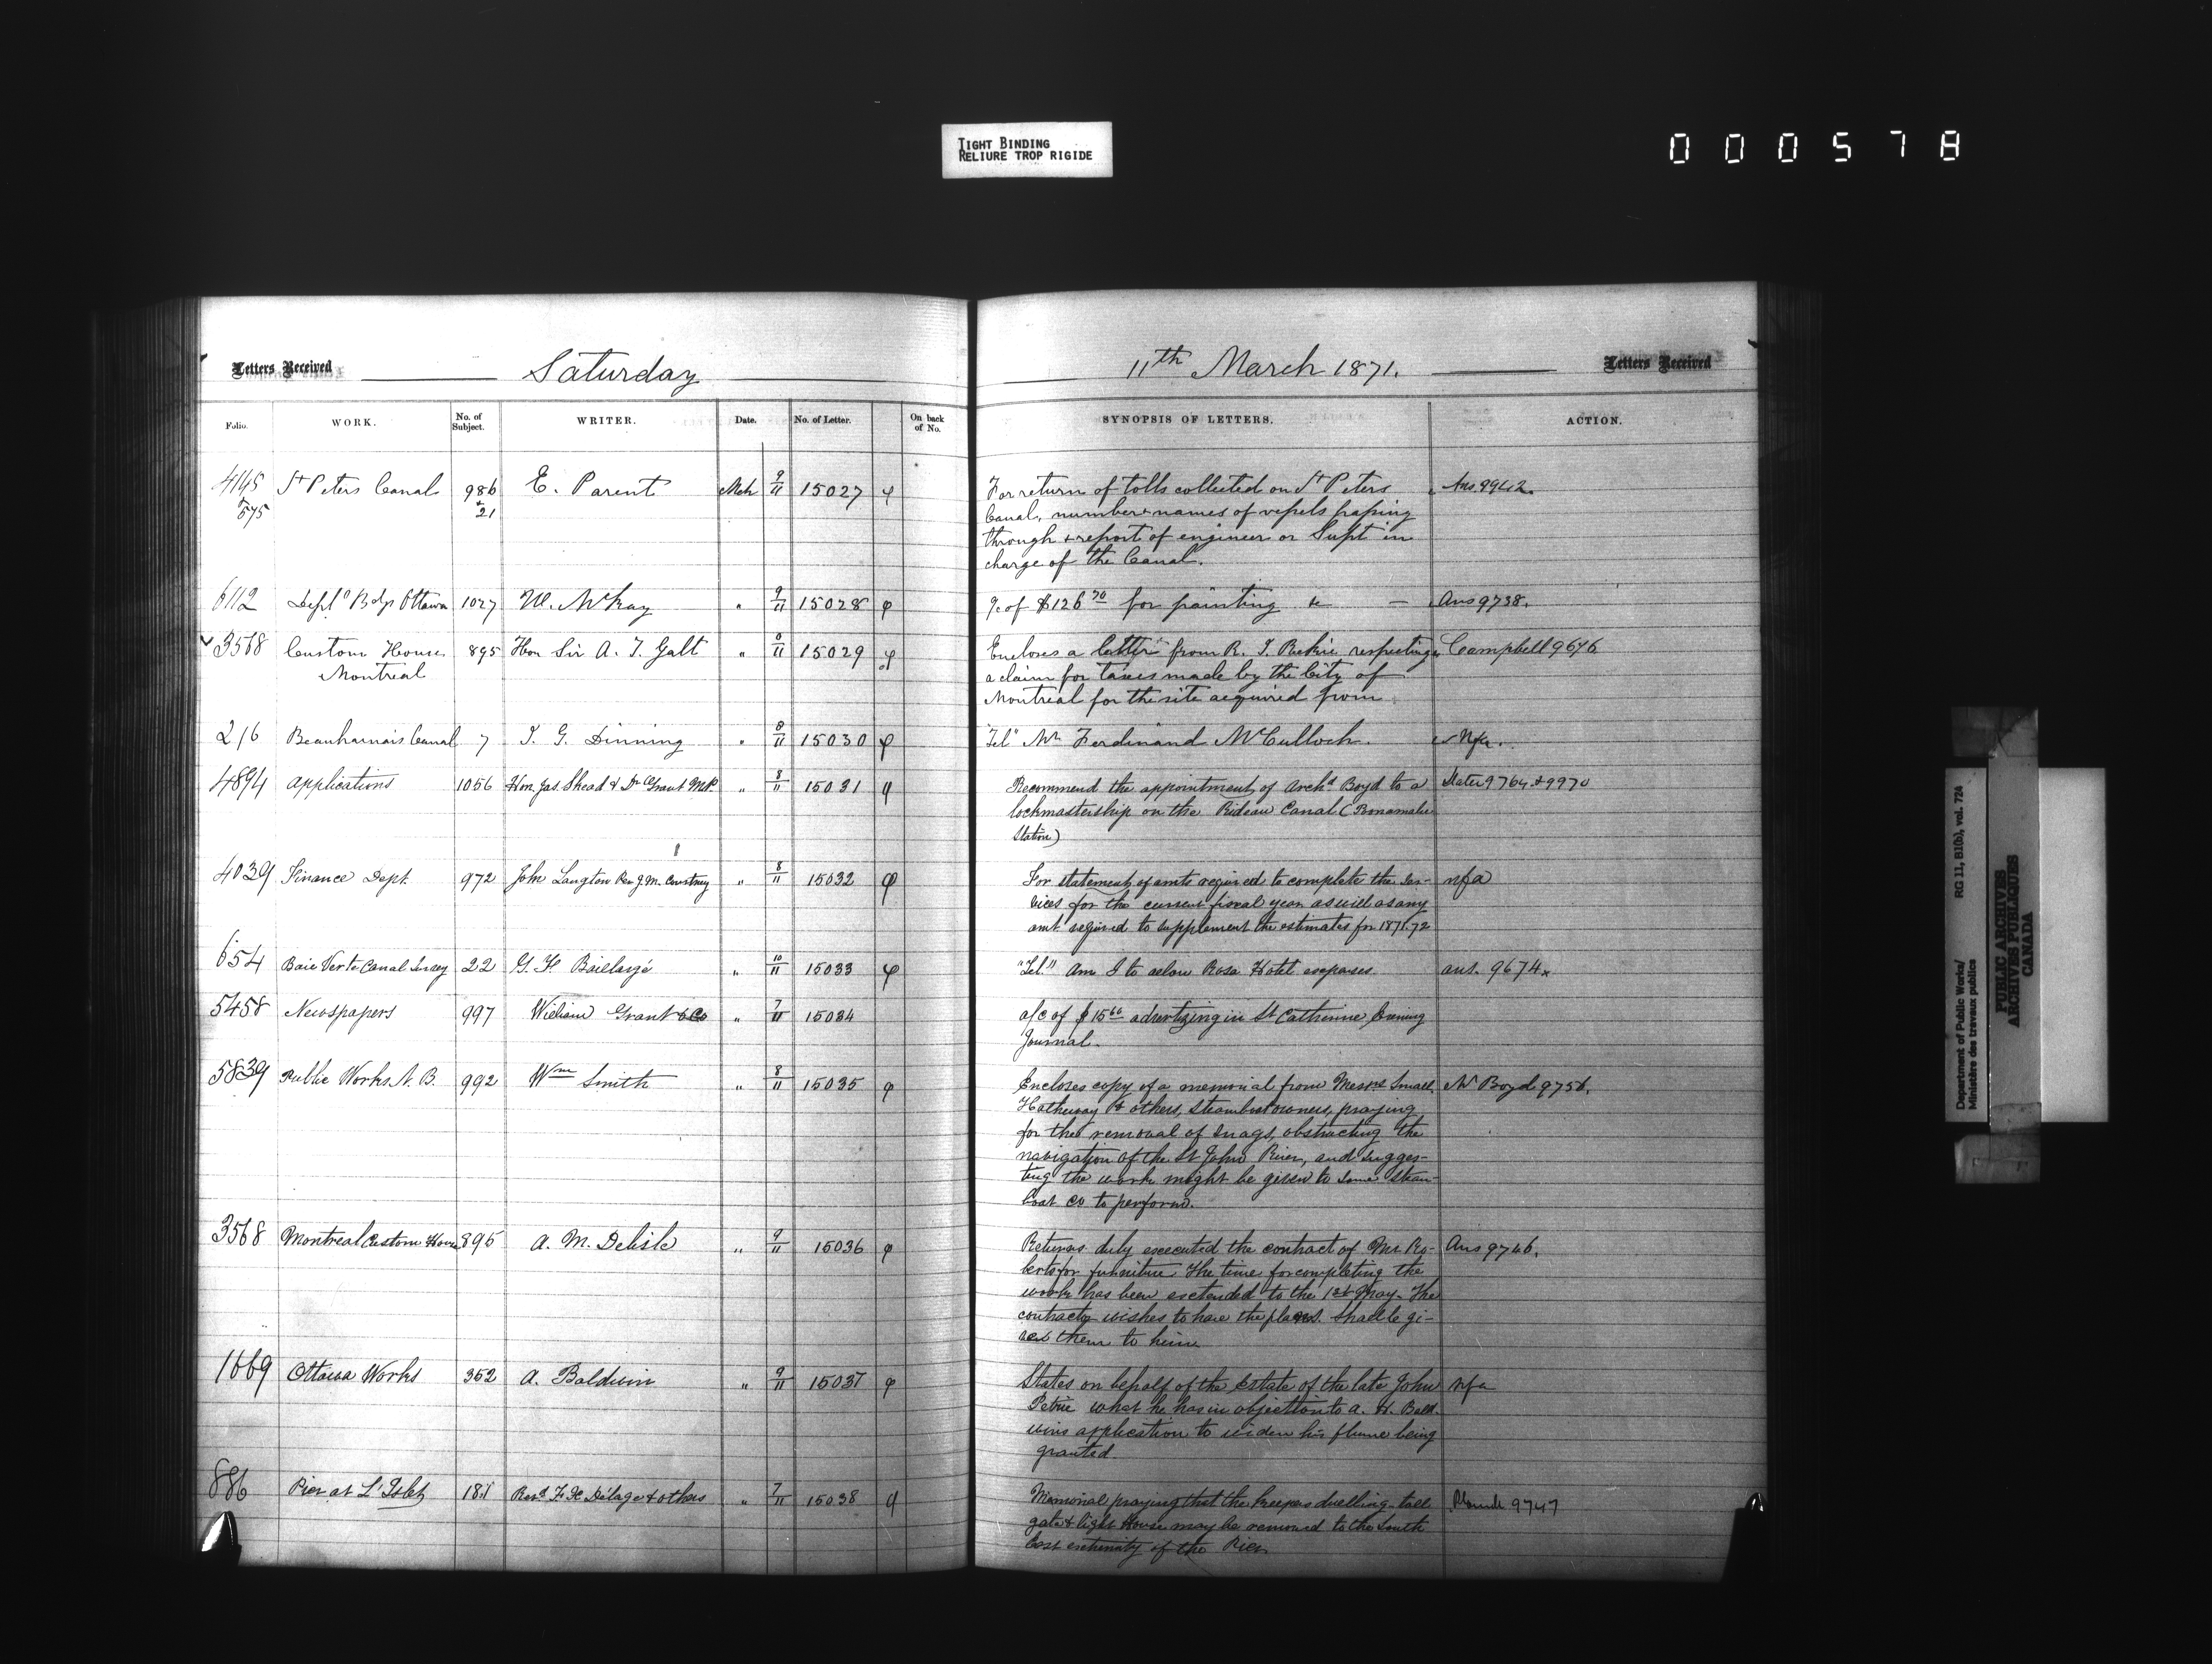 TIGHT BINDING
RELIURE TROP RIGIDE
000578
Letters Received
Saturday
11th March 1871.
Letters Received
Folio.
WORK.
No. of Subject.
WRITER.
Date.
No. of Letter.
On back of No.
SYNOPSIS OF LETTERS.
ACTION.
4145 + 575 St Peters Canal 986 + 21 E. Parent Mch 9/11 15027
For return of tolls collected on St Peters
Canal, number & names of vessels passing
through & report of engineer or Supt in
charge of the Canal.
Ans 9942.
6112 Deptl Bdgs Ottawa 1027 W. McKay " 9/11 15028
a/c of $126 70 for painting &c —
Ans 9738.
3568 Custom House Montreal 895 Hon Sir A. T. Galt " 8/11 15029
Encloses a letter from R. T. respecting
a claim for taxes made by the City of
Montreal for the site acquired from
Campbell 9676
216 Beauharnais Canal 7 T. G. Dinning " 8/11 15030
"Tel" Mr Ferdinand McCulloch.
Nfa.
4894 Applications 1056 Hon. Jas. Skead & Dr Grant MP " 8/11 15031
Recommend the appointment of Archd Boyd to a
lockmastership on the Rideau Canal (
Station)
Slater 9764 & 9970
4039 Finance Dept. 972 John Langton Per J. M. Courtney " 8/11 15032
For statement of amts required to complete the ser-
vices for the current fiscal year as well as any
amt required to supplement the estimates for 1871-72
nfa
654 Baie Verte Canal Survey 22 G. F. Baillargé " 10/11 15033
"Tel" Am I to allow Rosa Hotel expenses.
ans. 9674
5458 Newspapers 997 William Grant & Co " 7/11 15034
a/c of $15 advertizing in St Catherine Evening
Journal.
5839 Public Works N. B. 992 Wm Smith " 8/11 15035
Encloses copy of a memorial from Messrs Small
Hatheway & others, steamboat owners, praying
for the removal of snags, obstructing the
navigation of the St John River, and sugges-
ting the work might be given to some steam-
boat Co to perform.
Mr Boyd 9756.
3568 Montreal Custom House 895 A. M. Delisle " 9/11 15036
Returns duly executed the contract of Mr Ro-
berts for furniture. The time for completing the
work has been extended to the 1st May. The
contractor wishes to have the plans. Shall he gi-
ve them to him
Ans 9746.
1669 Ottawa Works 352 A. Baldwin " 9/11 15037
States on behalf of the Estate of the late John
Petrie what he has in objection to A. H. Bald-
wins application to widen his flume being
granted.
nfa
886 Pier at L'Islet 181 Revd F. X. Délage & others " 7/11 15038
Memorial praying that the keepers dwelling- toll
gate & light House may be removed to the South
East extremity of the Pier
9747
Department of Public Works/
Ministère des travaux publics
RG 11, B1(b), vol. 724
PUBLIC ARCHIVES
ARCHIVES PUBLIQUES
CANADA